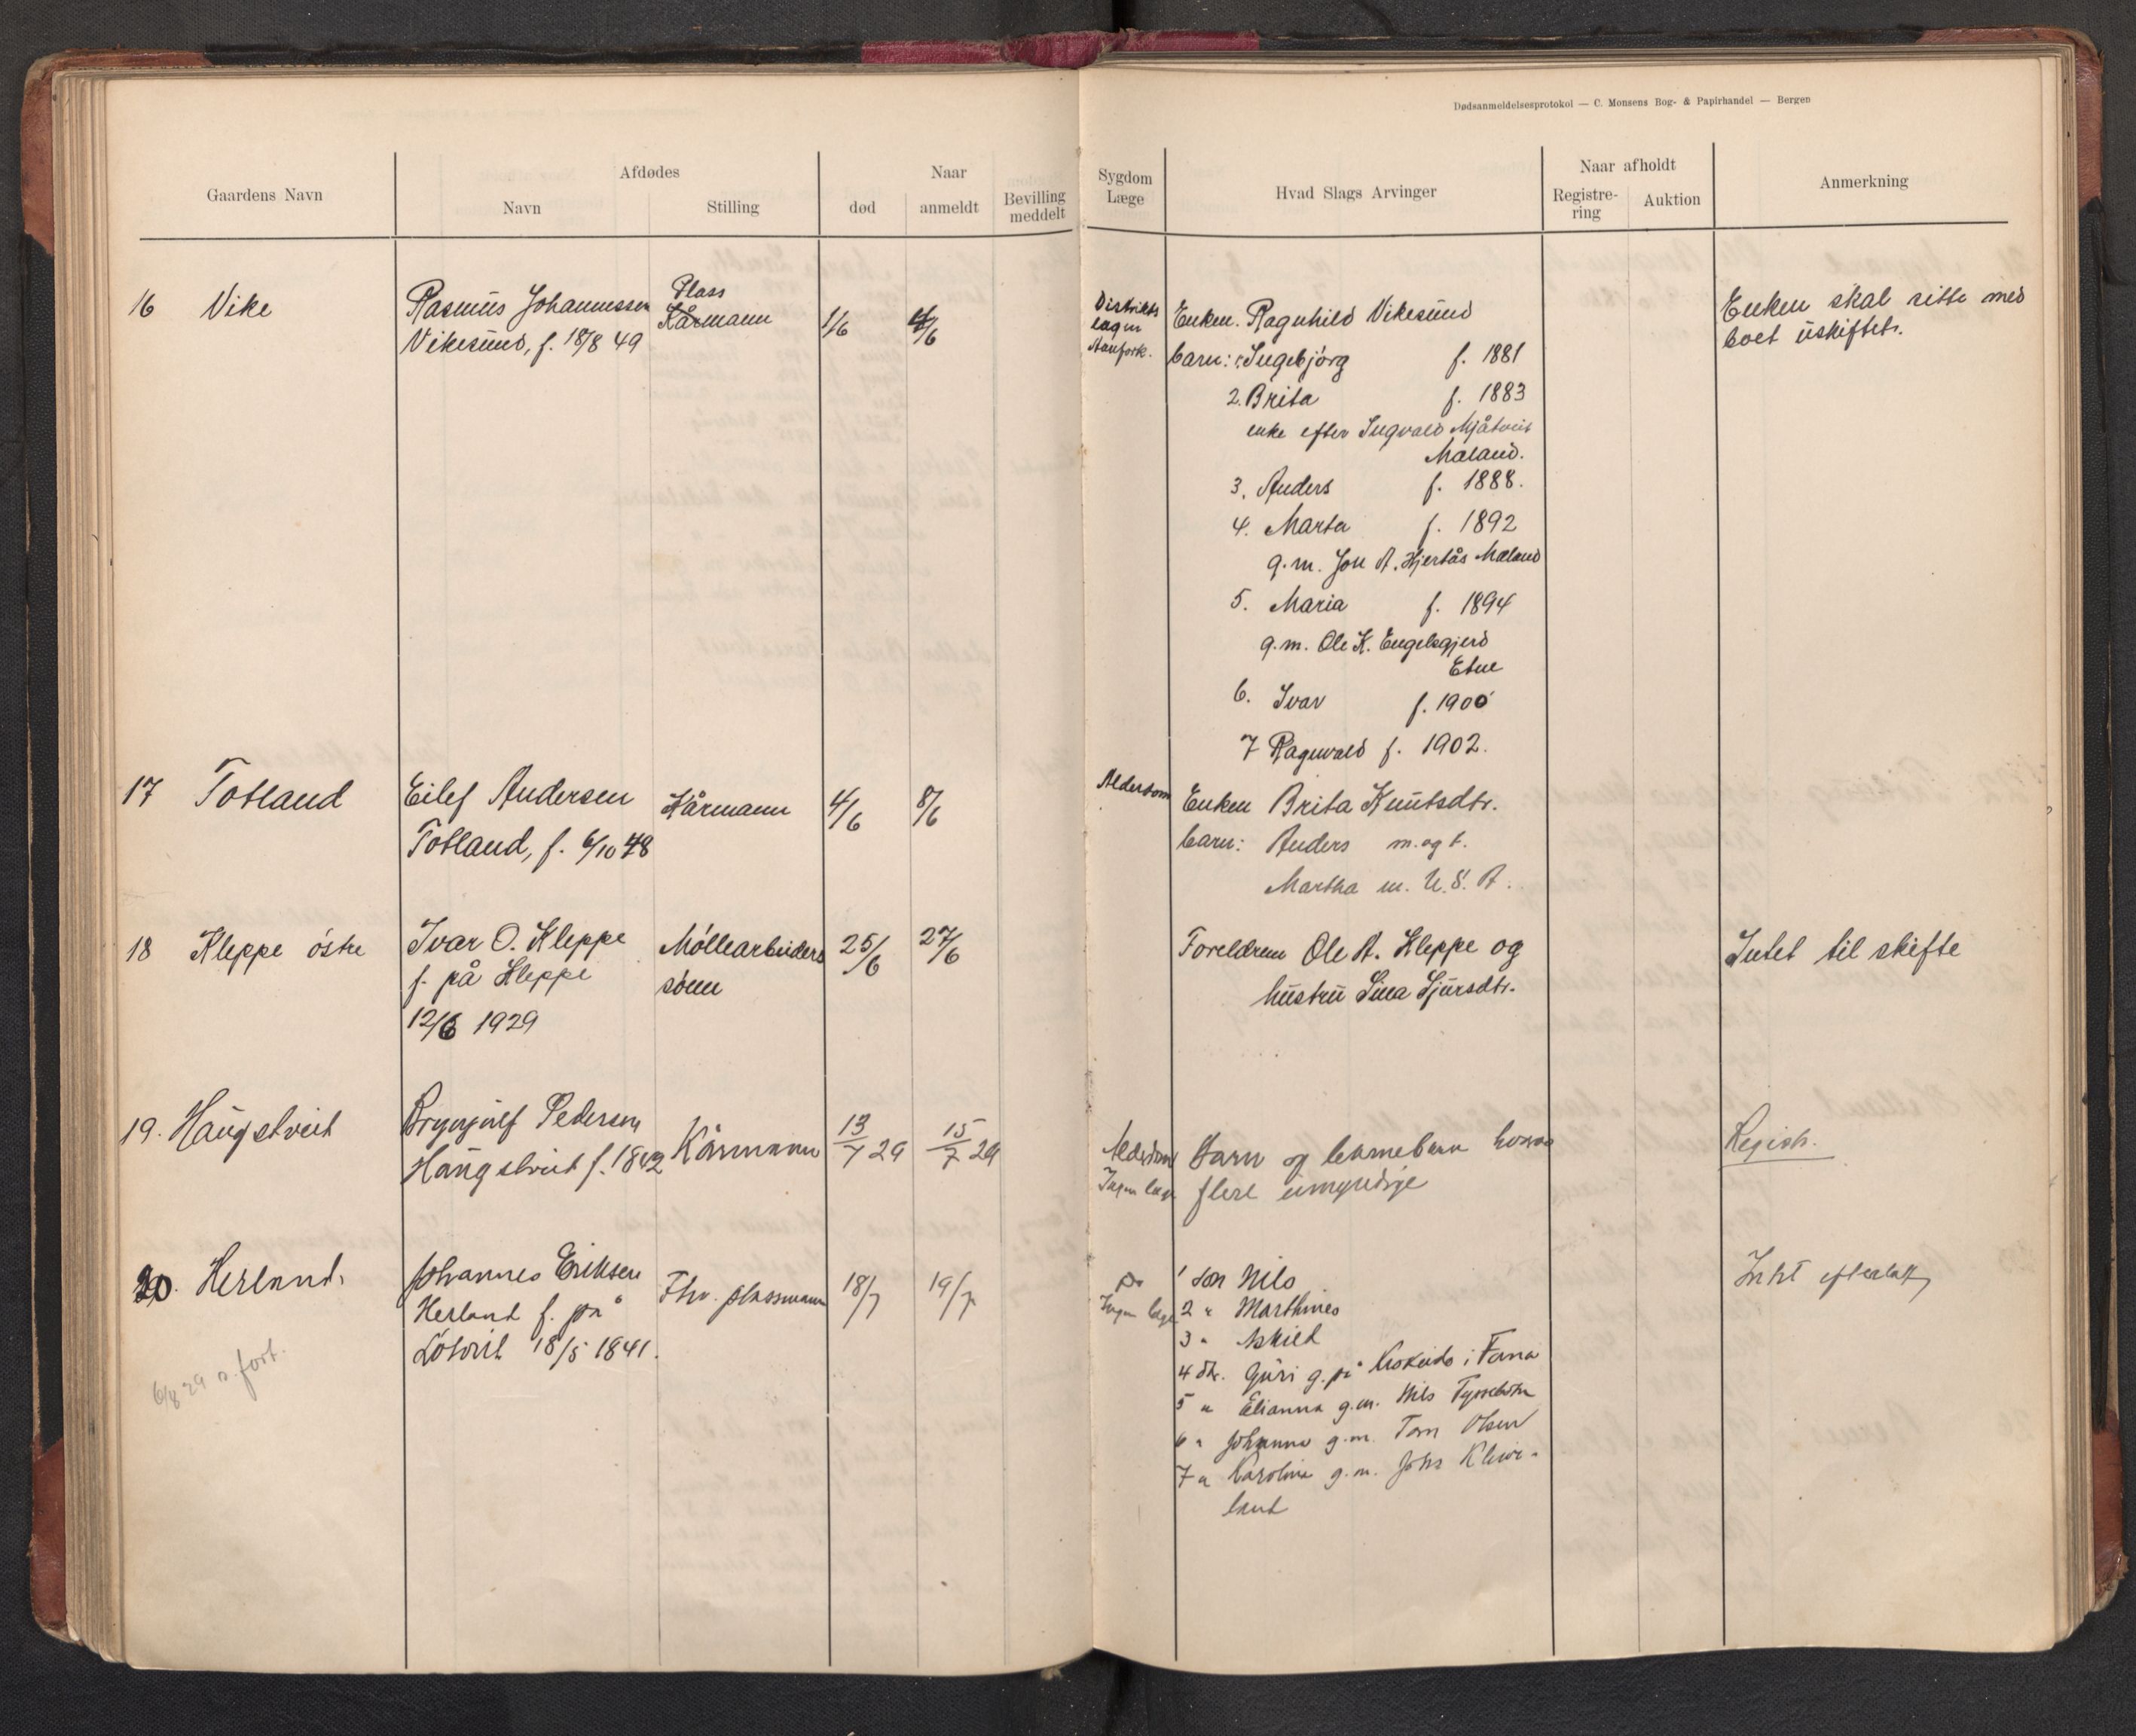 Dødsanmeldelsesprotokol — C. Monsens Bog- & Papirhandel — Bergen
Gaardens Navn
Afdødes
Navn
Stilling
Naar
død
anmeldt
Bevilling meddelt
Sygdom
Læge
Hvad Slags Arvinger
Naar afholdt
Registre-
ring
Auktion
Anmerkning
16 Vike
Rasmus Johannessen
Vikesund, f. 18/8 49
Plass
Kårmann
1/6
4/6
Distrikts
lægen
Enken. Ragnhild Vikesund
barn: 1. Ingebjörg f. 1881
2. Brita f. 1883
enke efter Ingvald Mjåtveit
Mæland.
3. Anders f. 1888.
4. Marta f. 1892
g.m. Jon A. Hjertås Mæland
5. Maria f. 1894
g.m. Ole K. Engelsgjerd
Etne
6. Ivar f. 1900
7 Ragnvald f. 1902.
Enken skal sitte med
boet uskiftet.
17 Totland
Eilef Andersen
Totland, f. 6/10 48
Kårmann
4/6
8/6
Alderdom
Enken Brita Knutsdtr.
barn: Anders m. og t.
Martha m. U.S.A.
18 Kleppe östre
Ivar O. Kleppe
f. på Kleppe
12/6 1929
Möllearbeiders
sönn
25/6
27/6
Foreldrene Ole A. Kleppe og
hustru Sina Sjursdtr.
Intet til skifte
19. Haugstveit
Brynjulf Pedersen
Haugstveit f. 1842
Kårmann
13/7 29
15/7 29
Alderdom
Ingen læge
Barn og barnebarn hvorav
flere umyndige
Registr.
20. Herland.
Johannes Eriksen
Herland f. på
Lötveit 18/5 1841.
Fhv. plassmann
18/7
19/7
Do
Ingen læge
1 sön Nils
2 " Marthines
3 " Askild
4 dtr. Guri g. på Krokeide i Fana
5 " Elianna g.m. Nils
6 " Johanna g.m. Tom Olsen
7 " Karoline g.m. Johs
land
Intet efterlatt
6/8 29 a. fort.